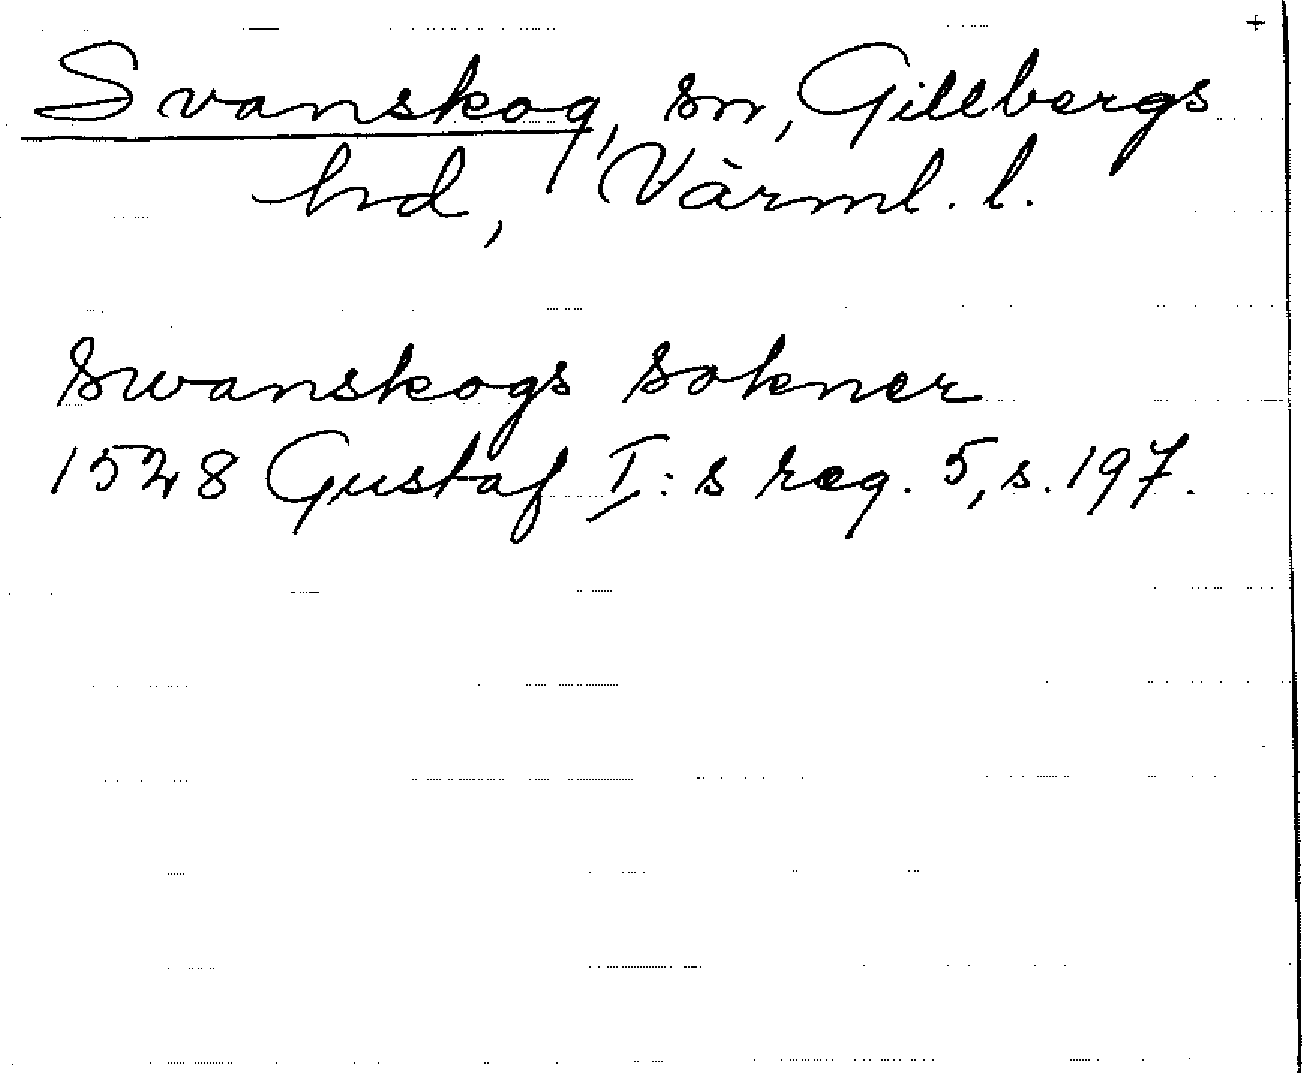 +
Svanskog, sn, Gillbergs
hd, Värml. l.
swanskogs sokner
1528 Gustaf I:s reg. 5, s. 197.